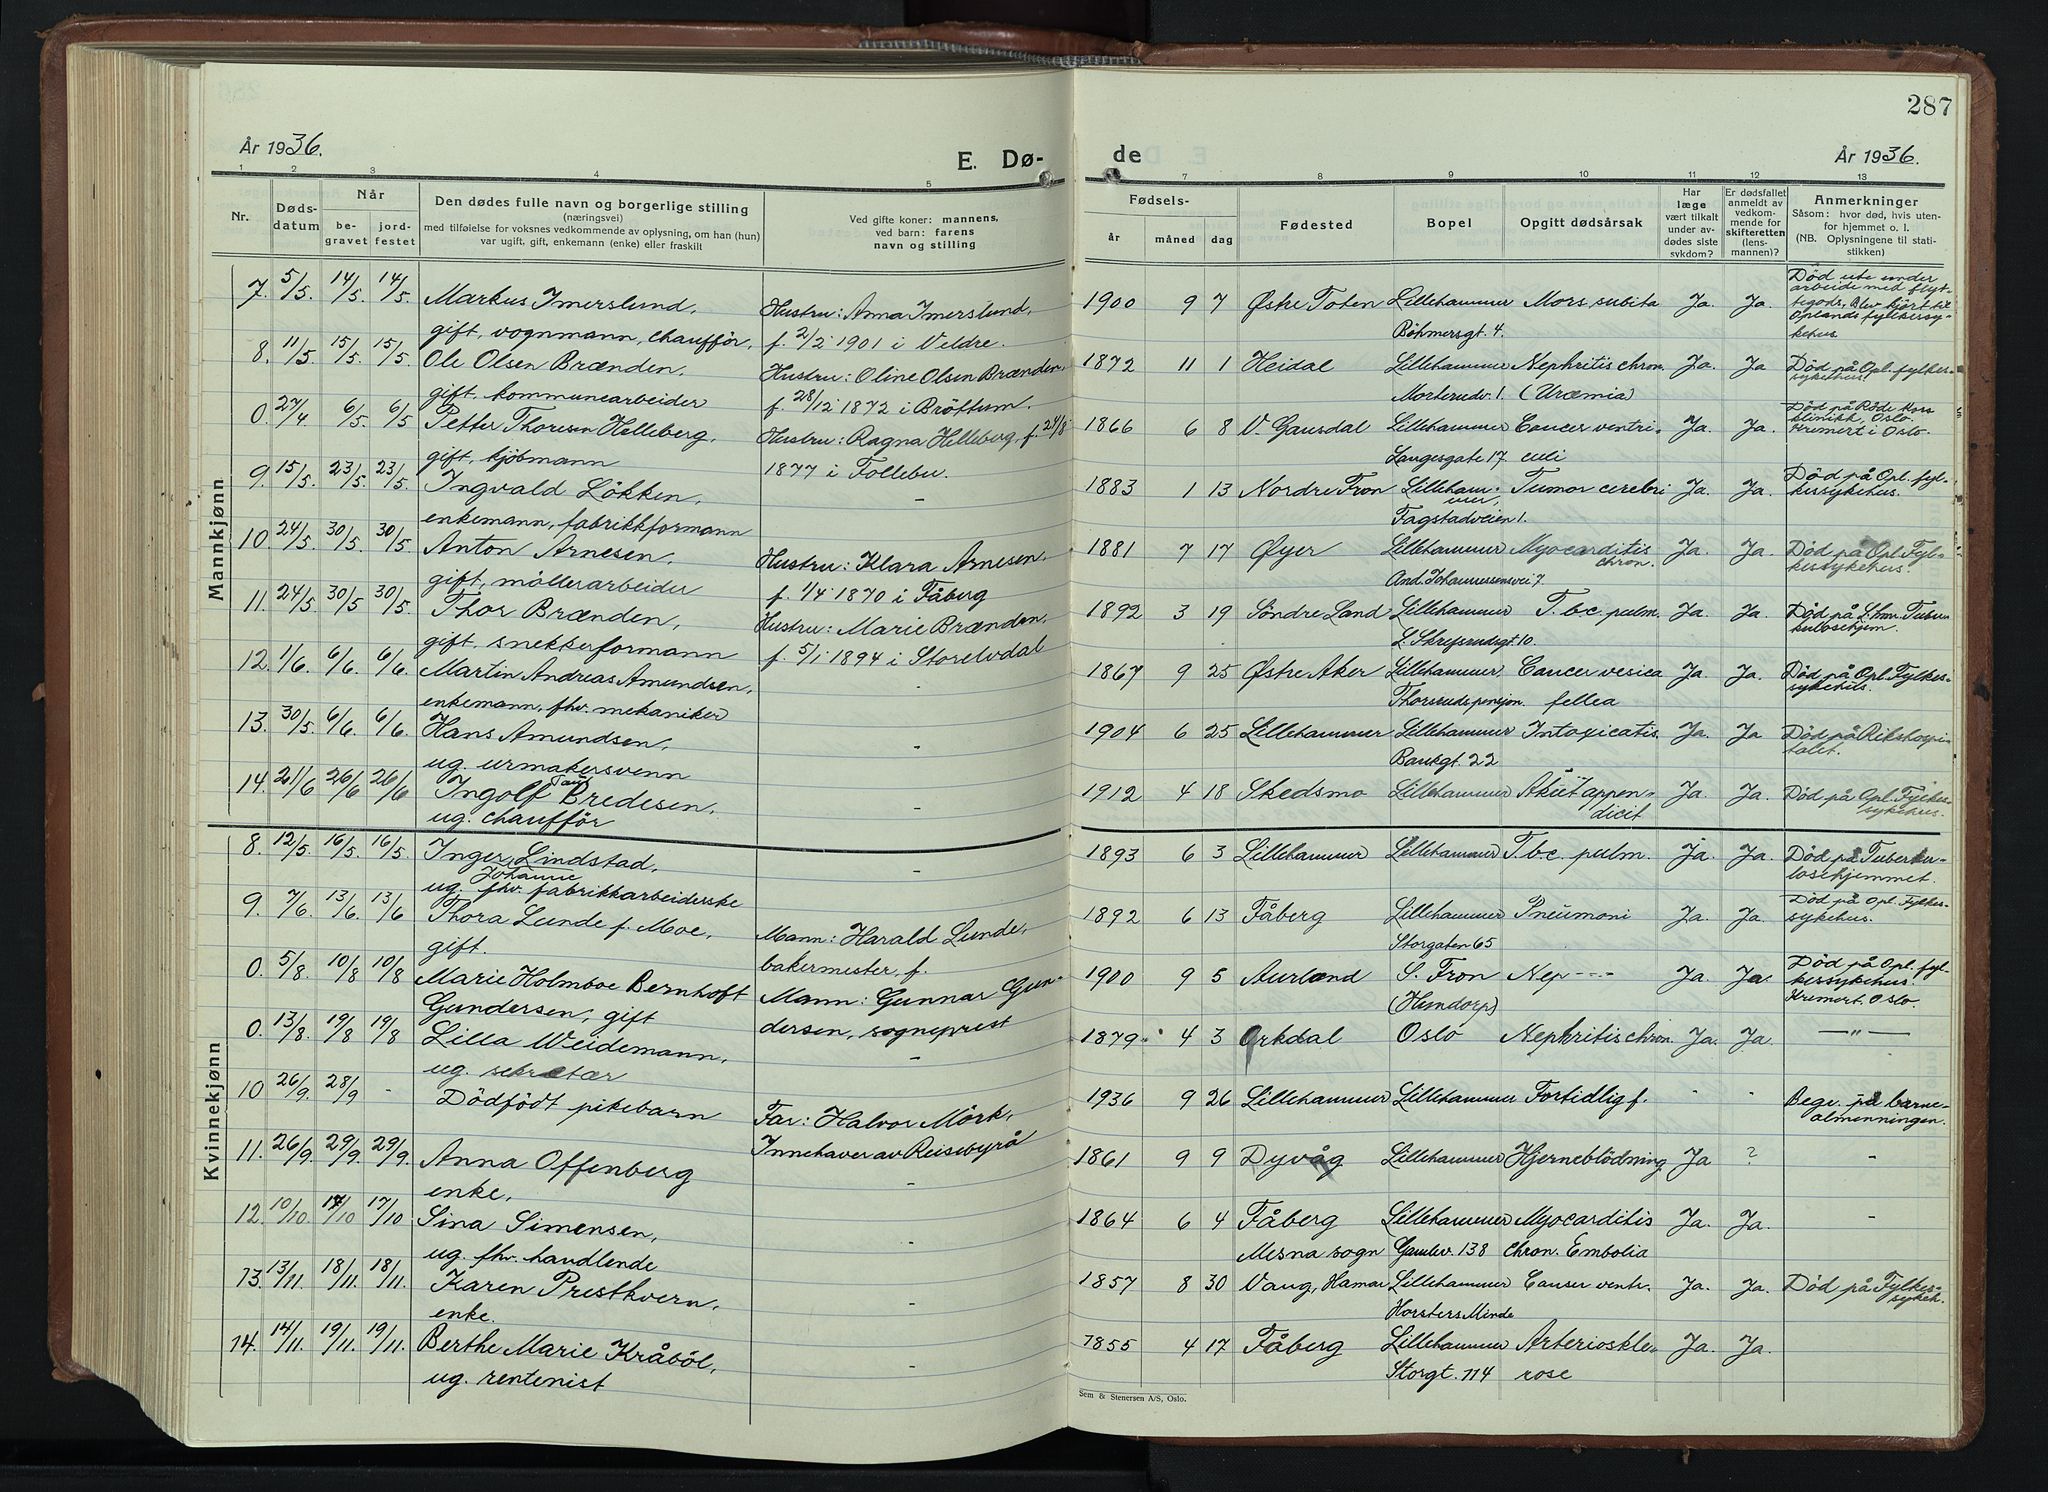 År 1936.
E. Dø-
1 2 3 4 5
Nr.
Døds-
datum
Når
be-
gravet
jord-
festet
Den dødes fulle navn og borgerlige stilling
(næringsvei)
med tilføielse for voksnes vedkommende av oplysning, om han (hun)
var ugift, gift, enkemann (enke) eller fraskilt
Ved gifte koner: mannens,
ved barn: farens
navn og stilling
Mannkjønn
7. 5/5. 14/5. 14/5. Markus Imerslund, Hustru: Anna Imerslund,
gift, vognmann, chauffør. f. 2/2 1901 i Veldre.
8. 11/5. 15/5. 15/5. Ole Olsen Brænden, Hustru: Oline Olsen Brænden,
gift, kommunearbeider f. 28/12 1872 i Brøttum.
0. 27/4 6/5. 6/5 Petter Thoresen Helleberg, Hustru: Ragna Helleberg, f. 21/8
gift, kjøbmann 1877 i Follebu.
9. 15/5. 23/5. 23/5. Ingvald Løkken, -
enkemann, fabrikkformann
10. 24/5. 30/5. 30/5. Anton Arnesen, Hustru: Klara Arnesen,
gift, møllerarbeider f. 1/4 1870 i Fåberg
11. 24/5 30/5 30/5. Thor Brænden, Hustru: Marie Brænden,
gift, snekkerformann f. 5/1 1894 i Storelvdal
12. 1/6. 6/6. 6/6. Martin Andreas Amundsen, -
enkemann, fhv. mekaniker
13. 30/5. 6/6. 6/6. Hans Amundsen, -
ug. urmakersvenn
14. 21/6 26/6 26/6 Ingolf Bredesen,
ug. chauffør
Kvinnekjønn
8. 12/5. 16/5. 16/5. Inger Johanne Lindstad, -
ug. fhv. fabrikkarbeiderske
9. 7/6. 13/6. 13/6 Thora Lunde f. Moe, Mann: Harald Lunde,
gift. bakermester, f.
0 5/8. 10/8 10/8 Marie Holmboe Bernhoft Mann: Gunnar Gun-
Gundersen, gift dersen, sogneprest
0. 13/8. 19/8 19/8 Lilla Weidemann, -
ug. sekretær
10 26/9. 28/9 - Dødfødt pikebarn Far: Halvor Mörk,
Innehaver av Reisebyrå
11. 26/9. 29/9. 29/9. Anna Offenberg -
enke,
12. 10/10. 17/10 17/10 Sina Simensen, -
ug. fhv. handlende
13. 13/11. 18/11. 18/11. Karen Prestkvern, -
enke.
14. 14/11. 19/11. 19/11. Berthe Marie Kråbøl, -
ug. rentenist
287
de
År 1936.
7 8 9 10 11 12 13
Fødsels-
år måned dag
Fødested
Bopel
Opgitt dødsårsak
Har
læge
vært tilkalt
under av-
dødes siste
sykdom?
Er dødsfallet
anmeldt av
vedkom-
mende for
skifteretten
(lens-
mannen)?
Anmerkninger
Såsom: hvor død, hvis uten-
for hjemmet o. l.
(NB. Oplysningene til stati-
stikken)
1900 9 7 Østre Toten Lillehammer Mors subita Ja. Ja. Død ute under
arbeide med flyt-
tegods, Blev kjørt til
Oplands fylkessy-
kehus
Böhmersgt. 4.
1872 11 1 Heidal Lillehammer Nephritis chron. Ja. Ja Død på Opl. fylkes-
sykehus.
Morterudv. 1. (Uræmia)
1866 6 8 V. Gausdal Lillehammer Cancer ventri- Ja. Ja. Død på Røde Kors
klinikk, Oslo.
Kremert i Oslo.
Langesgate 17 culi
1883 1 13 Nordre Fron Lilleham- Tumor cerebri Ja. Ja. Død på Opl. fyl-
mer, kessykehus.
Fagstadveien 1.
1881 7 17 Øyer Lillehammer Myocarditis Ja. Ja. Død på Opl. Fyl-
chron. kessykehus.
And. Johannessensvei 7.
1892 3 19 Søndre Land Lillehammer T.b.c. pulm. Ja. Ja. Død på L.hmr. Tuber-
kulosehjem.
L. Skrefsrudsgt 10.
1867 9 25 Østre Aker Lillehammer, Cancer vesica Ja Ja. Død på Opl. Fylkes-
sykehus.
Thorsrudspensjon. fellea
1904 6 25 Lillehammer Lillehammer Intoxicatis. Ja. Ja Død på Rikshospi-
talet.
Bankgt. 22
1912 4 18 Skedsmo Lillehammer Akut appen- Ja. Ja. Død på Opl. Fylkes-
dicit sykehus.
1893 6 3 Lillehammer Lillehammer T.b.c. pulm. Ja. Ja. Død på Tuberku-
losehjemmet.
1892 6 13 Fåberg Lillehammer Pneumoni Ja. Ja. Død på Opl. Fylkes-
sykehus.
Storgaten 65
1900 9 5 Aurland S. Fron Nep---- Ja. Ja. Død på Opl. fyl-
kessykehus.
Kremert. Oslo.
(Hundorp)
1879 4 3 Orkdal Oslo Nephritis chron. Ja. Ja. —"—
1936 9 26 Lillehammer Lillehammer Fortidlig f. - - Begr. på barne-
almenningen.
1861 9 9 Dyvåg Lillehammer Hjerneblødning Ja ? -
1864 6 4 Fåberg Lillehammer Myocarditis Ja. Ja. -
Mesna sogn Gamlev. 138 chron. Embolia
1857 8 30 Vang, Hamar Lillehammer Canser ventr. Ja. Ja. Død på Fylkes-
sykeh.
Horsters Minde
1855 4 17 Fåberg Lillehammer Arterioskle- Ja. Ja.
Storgt. 114 rose
Sem & Stenersen A/S, Oslo.